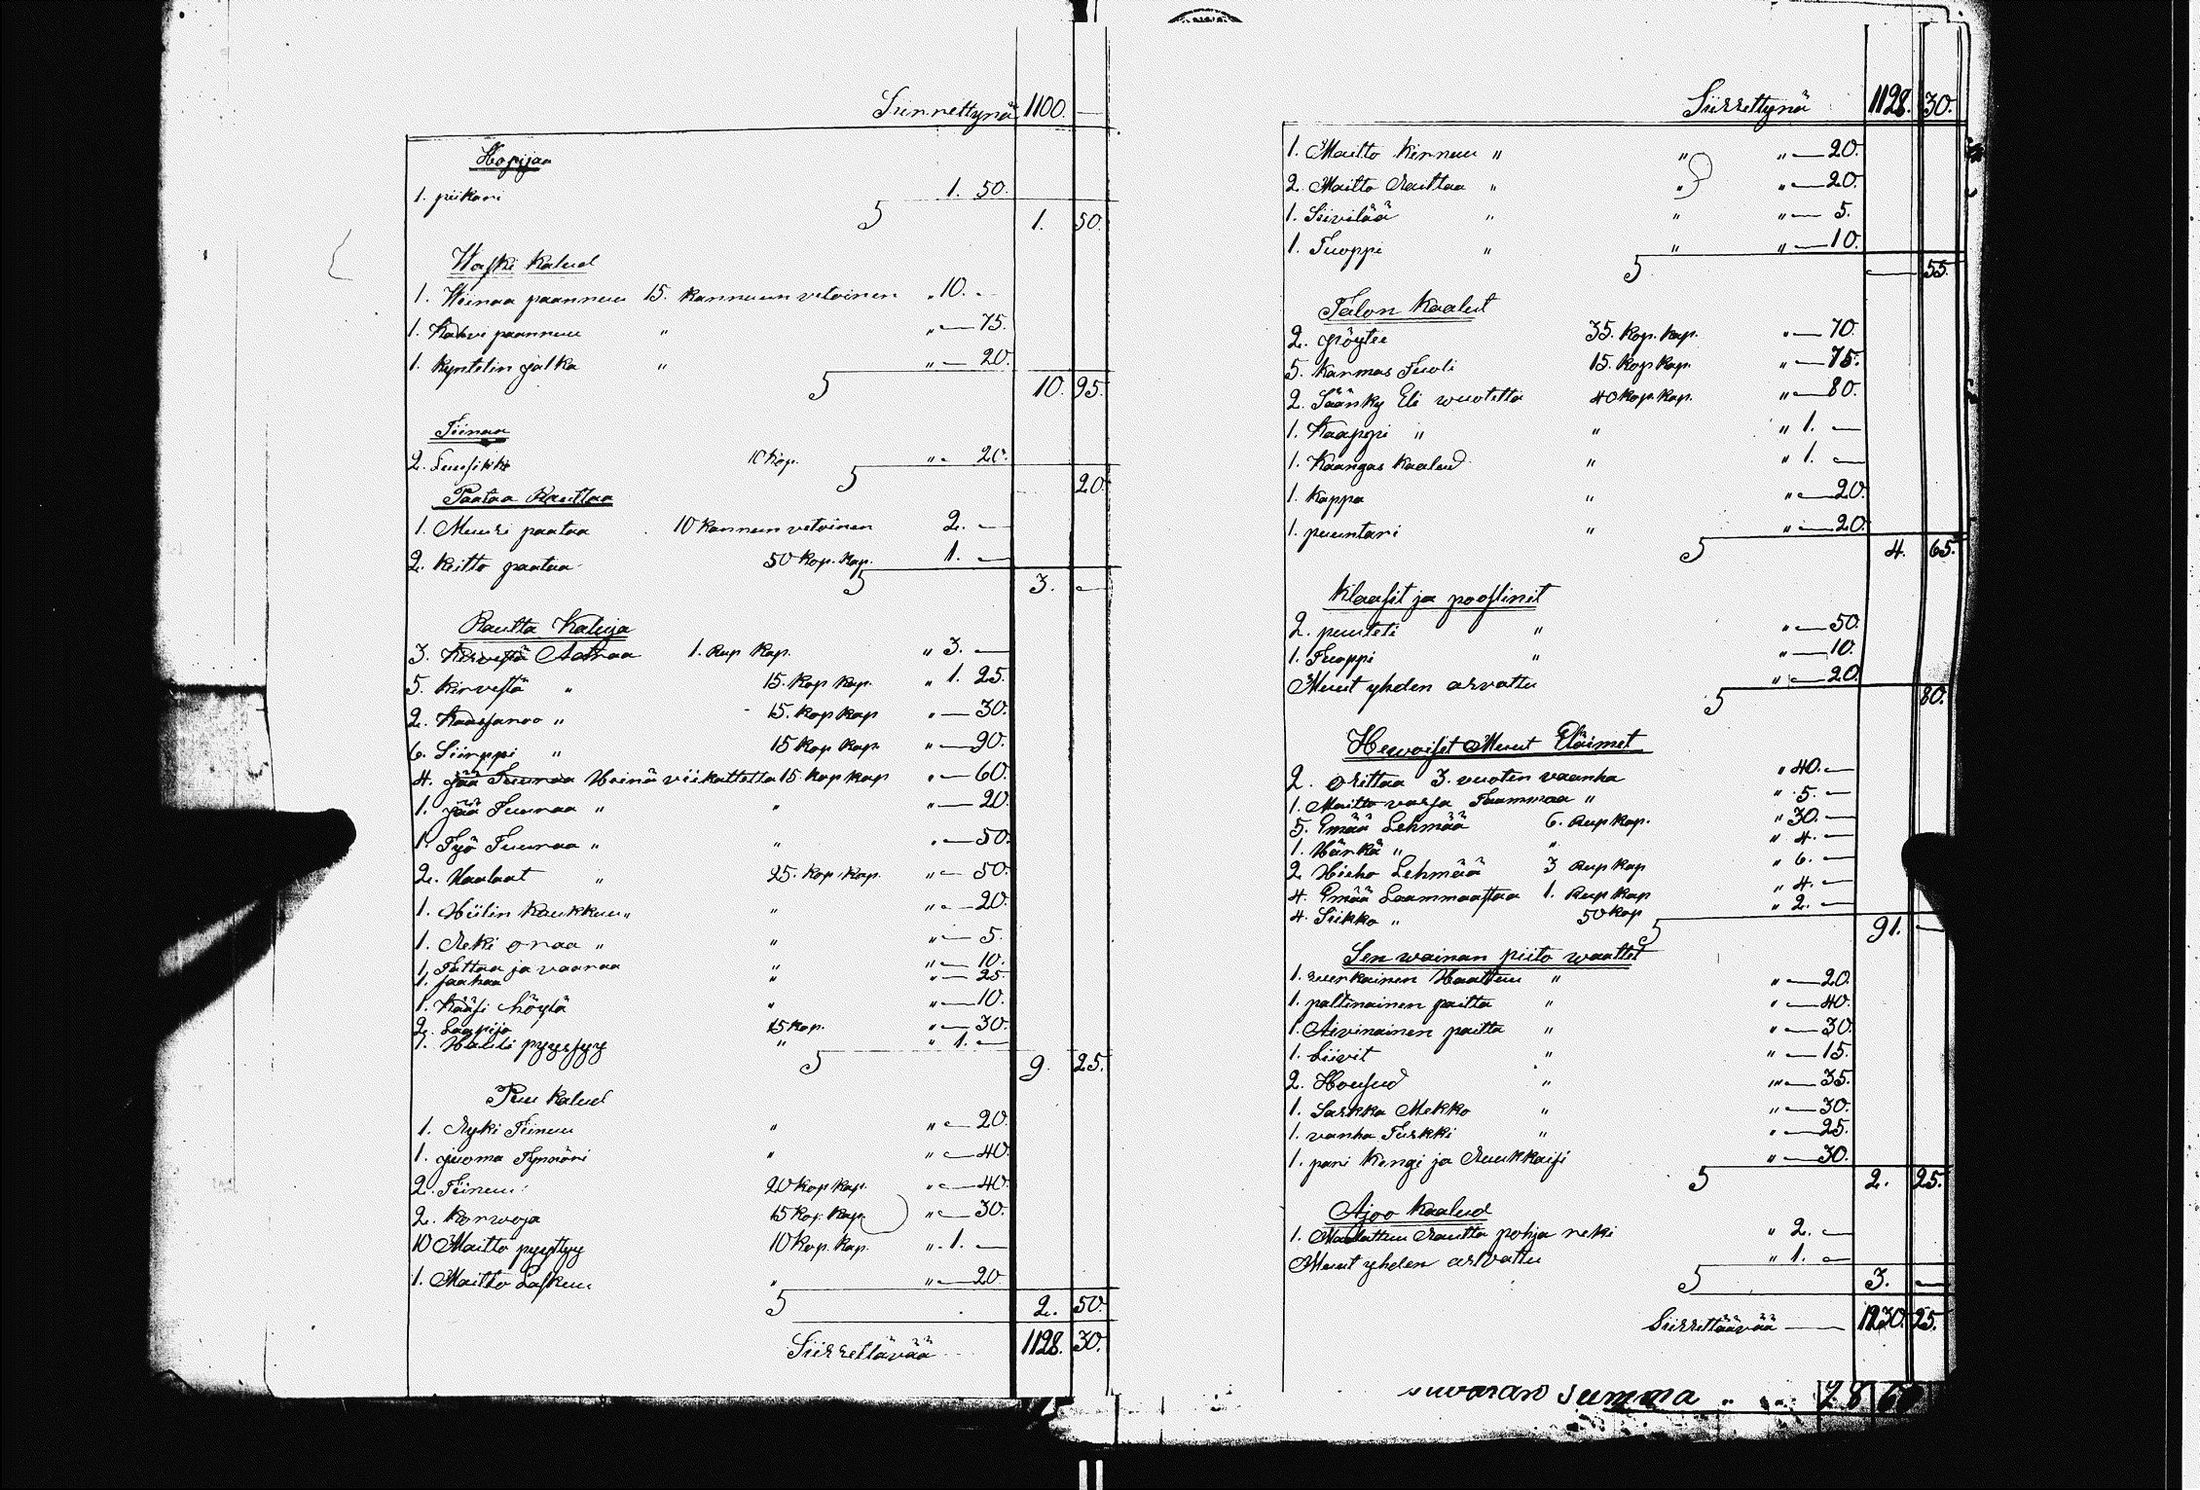 Siirrettynä 1100. —
Hopijaa
1. piikari 1. 50.
S 1. 50.
Waski kalud
1. Wiinaa paannuu 15. kannuun vetoinen „ 10. —
1. Kahvi paannuu „ „ — 75.
1. kyntelin jalka „ „ — 20.
S 10. 95.
Tiinaa
2. 10 kop. „ — 20.
S 20.
Paataa Rauttaa
1. Muuri paataa 10 kannuun vetoinen 2. —
2. keitto paataa 50 kop. kap. 1. —
S 3. —
Rautta Kaluja
3. Aatraa 1. Rup kap. „ 3. —
5. kirvestä „ 15. kop kap. „ 1. 25.
2. „ 15. kop kap „ — 30.
6. Siirppi „ 15 kop kap. „ — 90.
4. jää Tuuraa Heinä viikattetta 15. kop kap „ — 60.
1. jää Tuuraa „ „ „ — 20.
1. Työ Tuuraa „ „ „ — 50.
2. Naalaat „ 25. kop. kap. „ — 50.
1. Hiilin kaukkuu „ „ „ — 20.
1. Reki onaa „ „ „ — 5.
1. ja vaaraa „ „ — 10.
1. saahaa „ „ — 25.
1. Kääsi höylä „ „ — 10.
2. Laapija 15 kop. „ — 30.
1. Halli pyyssyy „ „ 1. —
S 9. 25.
Puu kalud
1. Ryki Tiinuu „ „ — 20.
1. juoma Tynnöri „ „ — 40.
2. Tiinuu 20 kop kap. „ — 40.
2. korwoja 15 kop. kap „ — 30.
10 Maitto pyyttyy 10 kop. kap. „ 1. —
1. Maitto Laskuu „ „ — 20.
S 2. 50.
Siirrettävää 1128. 30.
Siirrettynä 1128. 30.
1. Maitto kirnuu „ „ „ — 20.
2. Maitto Raittaa „ „ „ — 20.
1. Siivilää „ „ „ — 5.
1. Tuoppi „ „ „ — 10.
S — 55.
Talon kaalut
2. pöytee 35. kop. kap. „ — 70.
5. karmas Tuoli 15. kop kap. „ — 75.
2. Säänky Eli wuotetta 40 kop. kap. „ — 80.
1. Kaappi „ „ „ 1. —
1. Kaangas kaalud „ „ 1. —
1. kappa „ „ — 20.
1. puuntari „ „ — 20.
S 4. 65.
Klaasit ja poslinit
2. puuteli „ „ — 50.
1. Tuoppi „ „ — 10.
Muut yhden arvattu „ — 20.
S 80.
Hewoiset Muut Eläimet
2. orittaa 3. vuoten vaanha „ 40. —
1. Maitto varsa Taammaa „ „ 5. —
5. Emää Lehmää 6. Rup kap. „ 30. —
1. Härkä „ „ „ 4. —
2. Hieho Lehmää 3 Rup kap „ 6. —
4. Emää Laammaastaa 1. Rup kap „ 4. —
4. Siikko „ 50 kop „ 2. —
S 91. —
Sen wainan piito waattet
1. werkainen Haattuu „ „ — 20.
1. paltinainen paitta „ „ — 40.
1. Aivinainen paitta „ „ — 30.
1. Liivit „ „ — 15.
2. Housud „ „ — 35.
1. Sarkka Mekko „ „ — 30.
1. vanha Turkki „ „ — 25.
1. pari kengi ja Ruukkaisi „ — 30.
S 2. 25.
Ajoo kaalud
1. Maalattuu Rautta pohja reki „ 2. —
Muut yhden arvattu „ 1. —
S 3. —
Siirrettäävää — 1230. 25.
summa „ „ 28 60